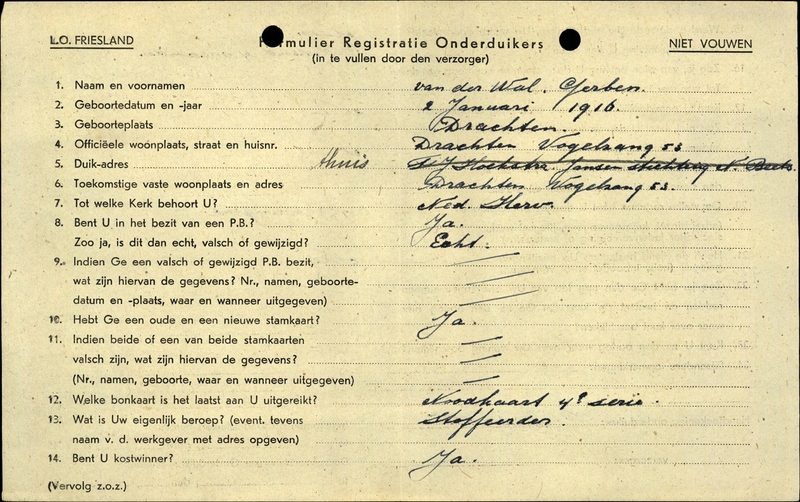 L.O. FRIESLAND
Formulier Registratie Onderduikers
NIET VOUWEN
(in te vullen door den verzorger)
1. Naam en voornamen van der Wal. Gerben.
2. Geboortedatum en -jaar 2 Januari 1916
3. Geboorteplaats Drachten.
4. Officiëele woonplaats, straat en huisnr. Drachten Vogelzang 53
5. Duik-adres thuis Hoekstra Jansen stichting N. Beets
6. Toekomstige vaste woonplaats en adres Drachten Vogelzang 53.
7. Tot welke Kerk behoort U? Ned. Herv.
8. Bent U in het bezit van een P.B.? Ja.
Zoo ja, is dit dan echt, valsch of gewijzigd? Echt.
9. Indien Ge een valsch of gewijzigd P.B. bezit,
wat zijn hiervan de gegevens? Nr., namen, geboorte-
datum en -plaats, waar en wanneer uitgegeven)
10. Hebt Ge een oude en een nieuwe stamkaart? Ja.
11. Indien beide of een van beide stamkaarten
valsch zijn, wat zijn hiervan de gegevens?
(Nr., namen, geboorte, waar en wanneer uitgegeven)
12. Welke bonkaart is het laatst aan U uitgereikt? Noodkaart 4e serie.
13. Wat is Uw eigenlijk beroep? (event. tevens Stoffeerder.
naam v. d. werkgever met adres opgeven)
14. Bent U kostwinner? Ja.
(Vervolg z.o.z.)